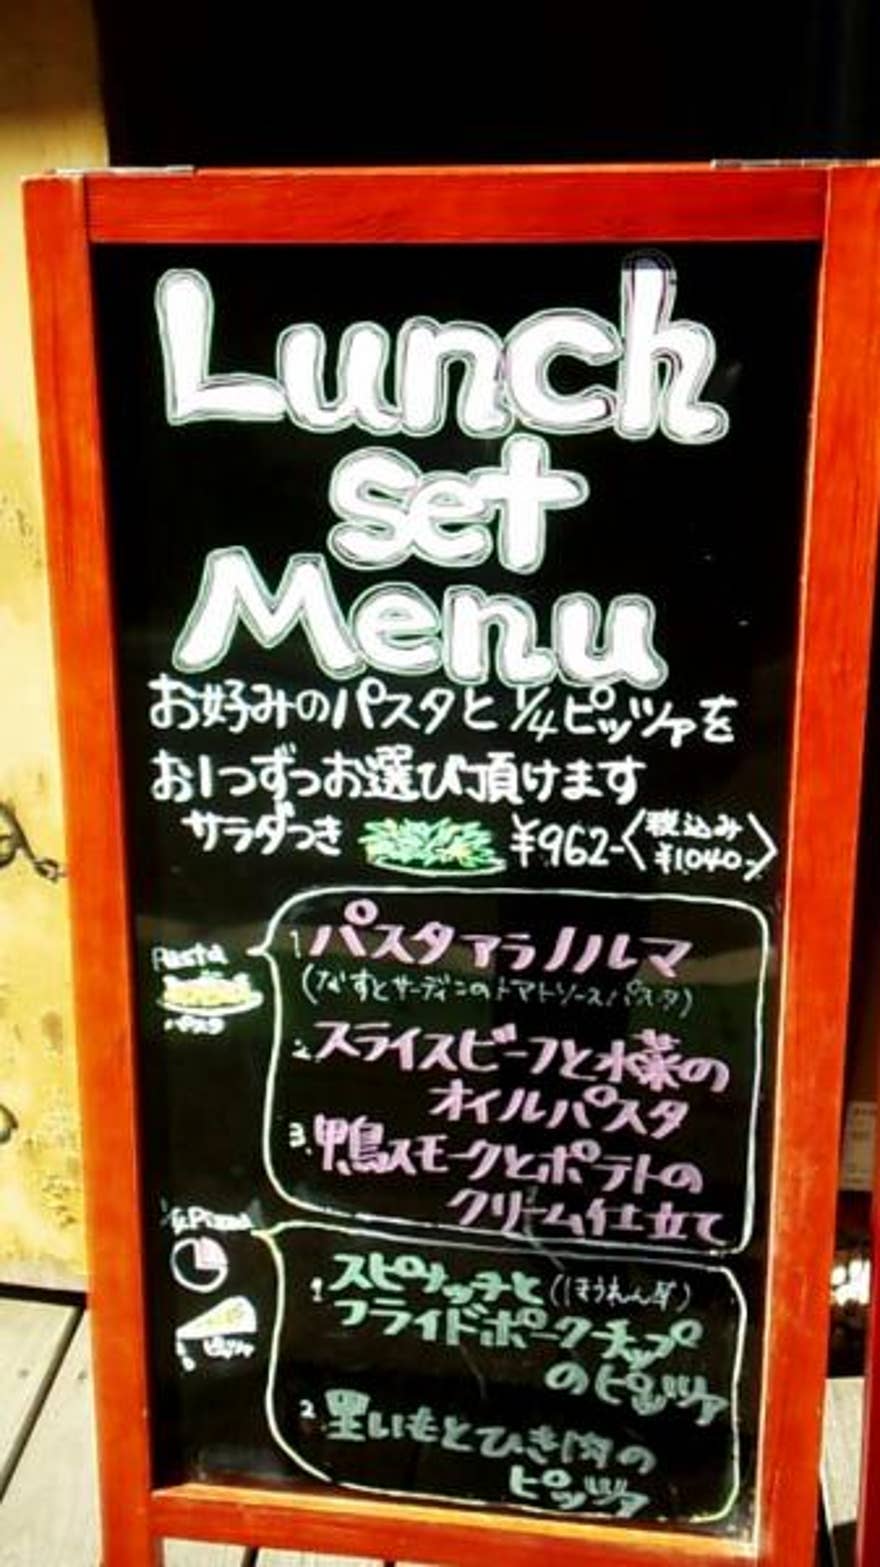 Lunch
set
Menu
お好みのパスタと1/4ピッツァを
お1つずつお選び頂けます
サラダつき ¥962-〈税込み ¥1040-〉
Pasta
パスタ
1. パスタアラノルマ
(なすとサーディンのトマトソースパスタ)
2. スライスビーフと水菜の
オイルパスタ
3. 鴨スモークとポテトの
クリーム仕立て
1/4 Pizza
ピッツァ
1. スピナッチと(ほうれん草)
フライドポークチップ
のピッツァ
2. 里いもとひき肉の
ピッツァ